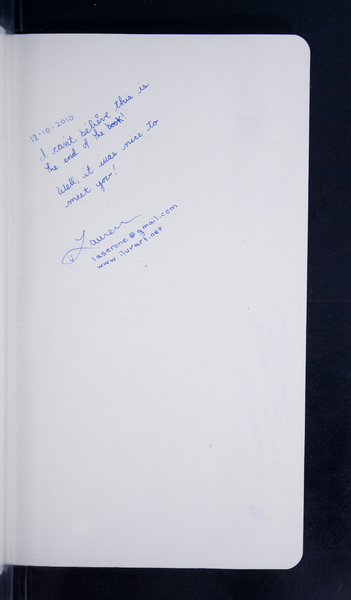 12-10-2010
I can't believe this is
the end of the book!
Well, it was nice to
meet you!
Lauren
laserone@gmail.com
www.iluvart.net